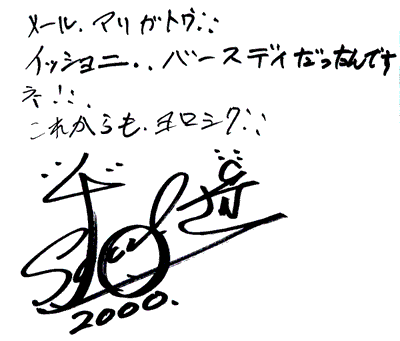 メール. アリガトウ!!
イッショニ.. バースデイだったんです
ネ!!.
これからも. ヨロシク!!
2000.